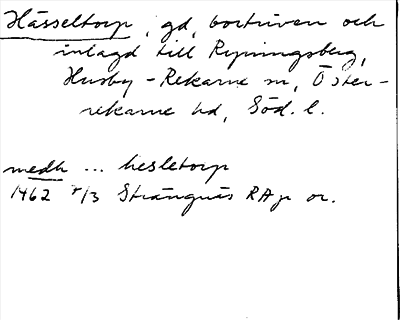 Hässeltorp, gd, bortriven och
inlagd till Rynningsberg,
Husby-Rekarne sn, Öster-
rekarne hd, Söd. l.
medh ... hesletorp
1462 5/3 Strängnäs RAp or.